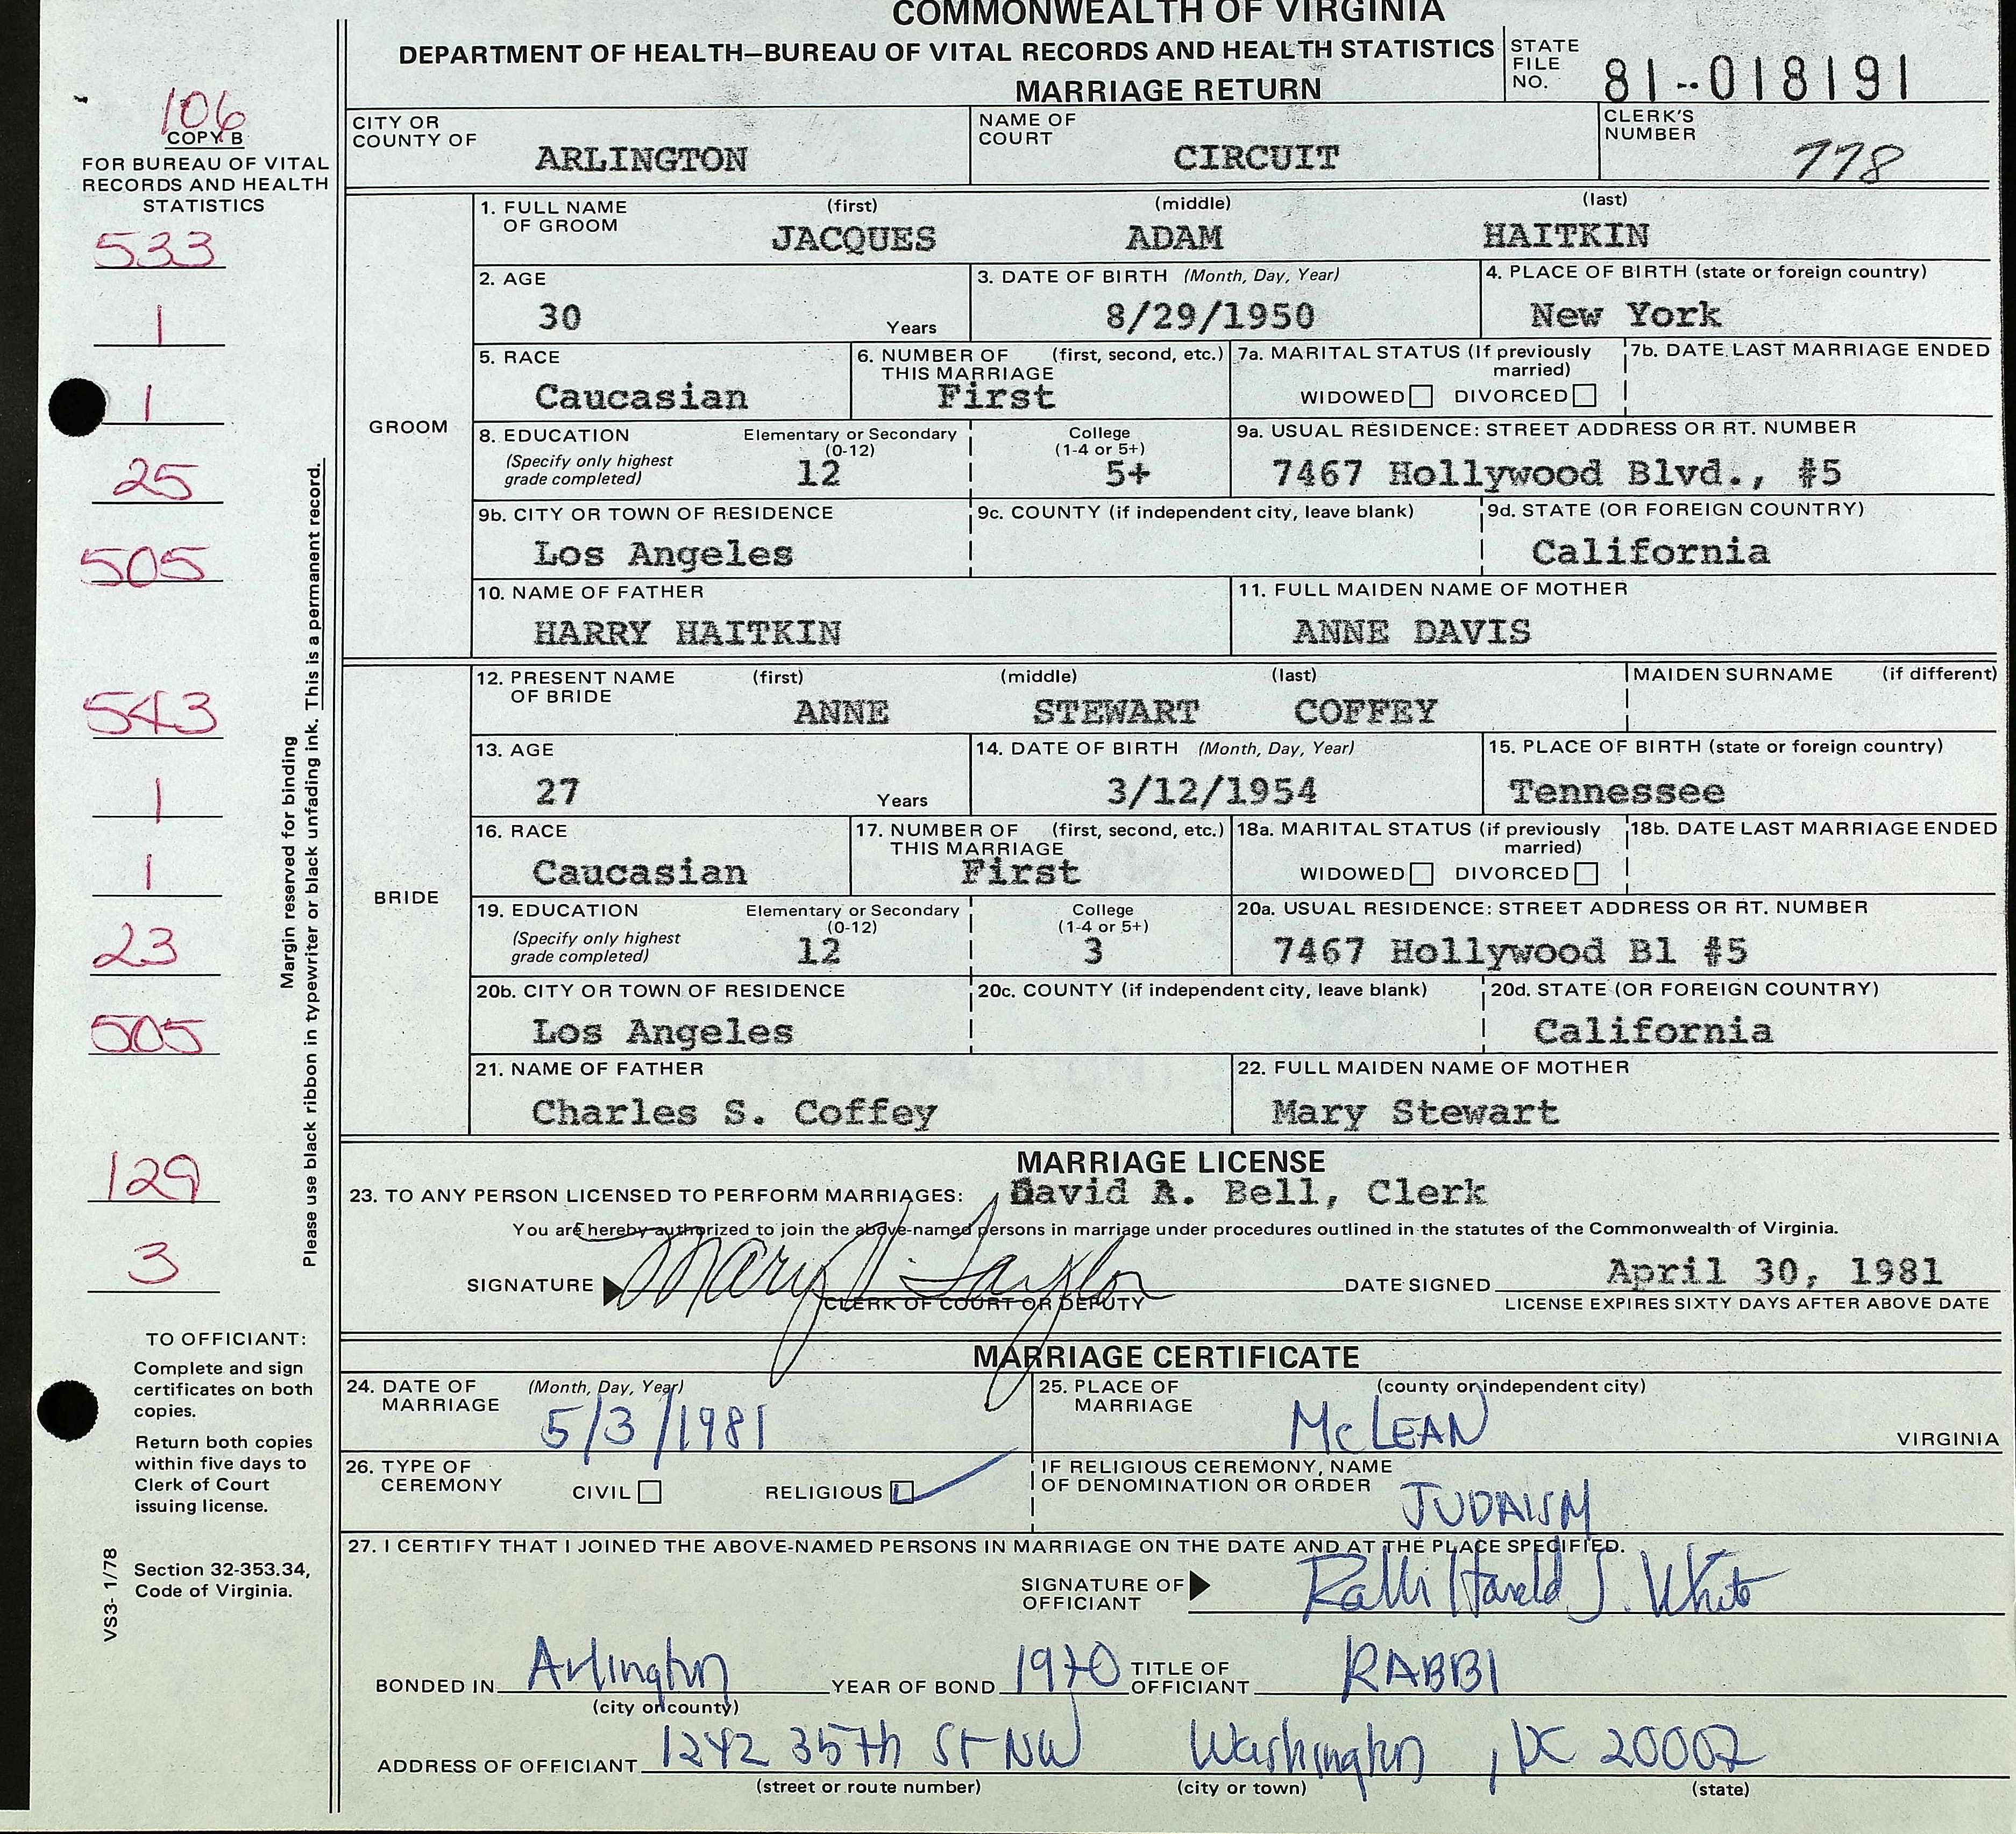 COMMONWEALTH OF VIRGINIA
DEPARTMENT OF HEALTH—BUREAU OF VITAL RECORDS AND HEALTH STATISTICS
MARRIAGE RETURN
STATE FILE NO. 81--018191
106
COPY B
FOR BUREAU OF VITAL
RECORDS AND HEALTH
STATISTICS
533
1
1
25
505
543
1
1
23
505
129
3
Margin reserved for binding
Please use black ribbon in typewriter or black unfading ink. This is a permanent record.
TO OFFICIANT:
Complete and sign
certificates on both
copies.
Return both copies
within five days to
Clerk of Court
issuing license.
Section 32-353.34,
Code of Virginia.
VS3- 1/78
CITY OR COUNTY OF ARLINGTON
NAME OF COURT CIRCUIT
CLERK'S NUMBER 778
GROOM
1. FULL NAME OF GROOM (first) (middle) (last)
JACQUES ADAM HAITKIN
2. AGE 30 Years
3. DATE OF BIRTH (Month, Day, Year) 8/29/1950
4. PLACE OF BIRTH (state or foreign country) New York
5. RACE Caucasian
6. NUMBER OF THIS MARRIAGE (first, second, etc.) First
7a. MARITAL STATUS (If previously married)
WIDOWED DIVORCED
7b. DATE LAST MARRIAGE ENDED
8. EDUCATION (Specify only highest grade completed)
Elementary or Secondary (0-12) 12
College (1-4 or 5+) 5+
9a. USUAL RESIDENCE: STREET ADDRESS OR RT. NUMBER
7467 Hollywood Blvd., #5
9b. CITY OR TOWN OF RESIDENCE Los Angeles
9c. COUNTY (if independent city, leave blank)
9d. STATE (OR FOREIGN COUNTRY) California
10. NAME OF FATHER HARRY HAITKIN
11. FULL MAIDEN NAME OF MOTHER ANNE DAVIS
BRIDE
12. PRESENT NAME OF BRIDE (first) (middle) (last)
MAIDEN SURNAME (if different)
ANNE STEWART COFFEY
13. AGE 27 Years
14. DATE OF BIRTH (Month, Day, Year) 3/12/1954
15. PLACE OF BIRTH (state or foreign country) Tennessee
16. RACE Caucasian
17. NUMBER OF THIS MARRIAGE (first, second, etc.) First
18a. MARITAL STATUS (if previously married)
WIDOWED DIVORCED
18b. DATE LAST MARRIAGE ENDED
19. EDUCATION (Specify only highest grade completed)
Elementary or Secondary (0-12) 12
College (1-4 or 5+) 3
20a. USUAL RESIDENCE: STREET ADDRESS OR RT. NUMBER
7467 Hollywood Bl #5
20b. CITY OR TOWN OF RESIDENCE Los Angeles
20c. COUNTY (if independent city, leave blank)
20d. STATE (OR FOREIGN COUNTRY) California
21. NAME OF FATHER Charles S. Coffey
22. FULL MAIDEN NAME OF MOTHER Mary Stewart
MARRIAGE LICENSE
23. TO ANY PERSON LICENSED TO PERFORM MARRIAGES: David A. Bell, Clerk
You are hereby authorized to join the above-named persons in marriage under procedures outlined in the statutes of the Commonwealth of Virginia.
SIGNATURE Mary V. Taylor DATE SIGNED April 30, 1981
CLERK OF COURT OR DEPUTY LICENSE EXPIRES SIXTY DAYS AFTER ABOVE DATE
MARRIAGE CERTIFICATE
24. DATE OF MARRIAGE (Month, Day, Year) 5/3/1981
25. PLACE OF MARRIAGE (county or independent city) McLEAN VIRGINIA
26. TYPE OF CEREMONY CIVIL RELIGIOUS
IF RELIGIOUS CEREMONY, NAME OF DENOMINATION OR ORDER JUDAISM
27. I CERTIFY THAT I JOINED THE ABOVE-NAMED PERSONS IN MARRIAGE ON THE DATE AND AT THE PLACE SPECIFIED.
SIGNATURE OF OFFICIANT Rabbi Harold S. White
BONDED IN Arlington YEAR OF BOND 1970 TITLE OF OFFICIANT RABBI
(city or county)
ADDRESS OF OFFICIANT 1242 35th St NW Washington, DC 20007
(street or route number) (city or town) (state)